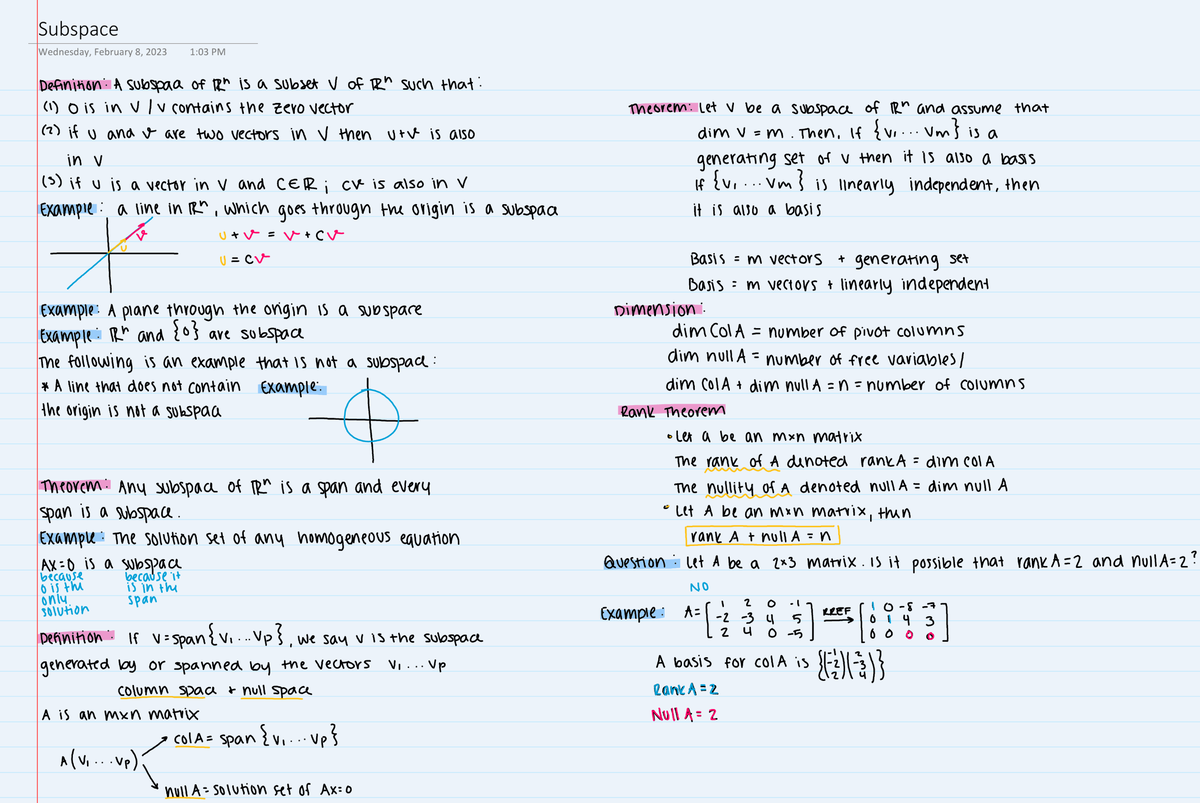 Subspace
Wednesday, February 8, 2023 1:03 PM
Definition: A subspace of ℝⁿ is a subset V of ℝⁿ such that:
(1) 0 is in V / V contains the zero vector
(2) if u and v are two vectors in V then u+v is also
in V
(3) if u is a vector in V and C∈ℝ; cv is also in V
Example: a line in ℝⁿ, which goes through the origin is a subspace
u + v = v + cv
u = cv
v
u
Example: A plane through the origin is a subspace
Example: ℝⁿ and {0} are subspace
The following is an example that is not a subspace:
* A line that does not contain Example:
the origin is not a subspace
Theorem: Any subspace of ℝⁿ is a span and every
span is a subspace.
Example: The solution set of any homogeneous equation
Ax=0 is a subspace
because because it
0 is the is in the
only span
solution
Definition: If V=span{v₁...vp}, we say V is the subspace
generated by or spanned by the vectors v₁...vp
column space + null space
A is an m×n matrix
colA = span {v₁...vp}
A(v₁...vp)
null A = solution set of Ax=0
Theorem: Let V be a subspace of ℝⁿ and assume that
dim V = m. Then, if {v₁...vm} is a
generating set of V then it is also a basis
If {v₁...vm} is linearly independent, then
it is also a basis
Basis = m vectors + generating set
Basis = m vectors + linearly independent
Dimension:
dim Col A = number of pivot columns
dim null A = number of free variables/
dim colA + dim null A = n = number of columns
Rank Theorem
• Let a be an m×n matrix
The rank of A denoted rank A = dim col A
The nullity of A denoted null A = dim null A
• Let A be an m×n matrix, then
rank A + null A = n
Question: Let A be a 2×3 matrix. Is it possible that rank A=2 and null A=2?
NO
Example: A= [ 1 2 0 -1
-2 -3 4 5
2 4 0 -5 ] RREF → [ 1 0 -8 -7
0 1 4 3
0 0 0 0 ]
A basis for colA is {(-1 -2 2)(2 -3 4)}
Rank A = 2
Null A = 2